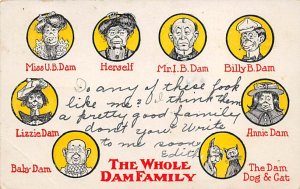 Miss U.B. Dam
Herself
Mr. I.B. Dam
Billy B. Dam
Do any of these look
like me? I think them
a pretty good family
don't you? Write
to me soon
Edith
Lizzie Dam
Annie Dam
Baby Dam
THE WHOLE
DAM FAMILY
The Dam
Dog & Cat